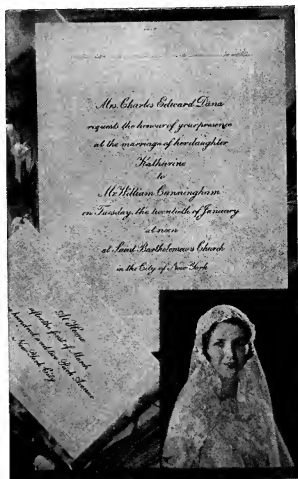 Mrs. Charles Edward Dana
requests the honour of your presence
at the marriage of her daughter
Katharine
to
Mr. William Cunningham
on Tuesday, the twentieth of January
at noon
at Saint Bartholomew's Church
in the City of New York
At Home
after the first of March
hundred and ten Park Avenue
New York City